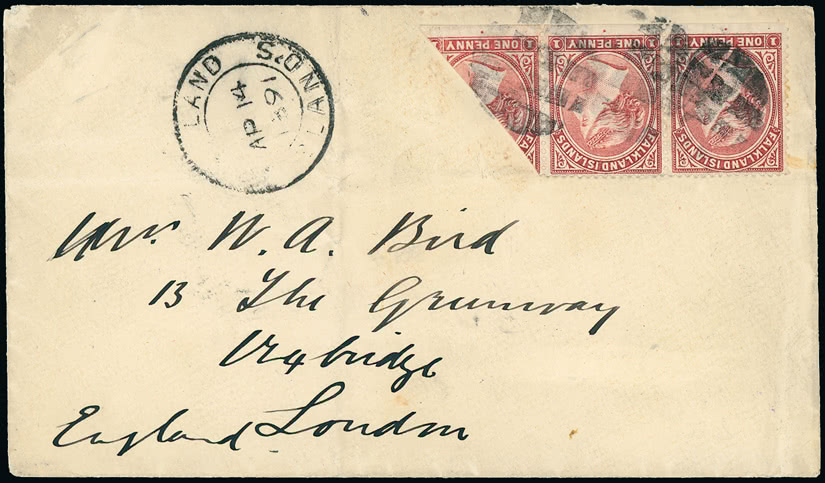 ONE PENNY
1 ONE PENNY 1
1 ONE PENNY 1
FALKLAND ISLANDS
FALKLAND ISLANDS
FALKLAND IS
AP 14
91
Mrs. W. A. Bird
13 The Greenway
Uxbridge
England London